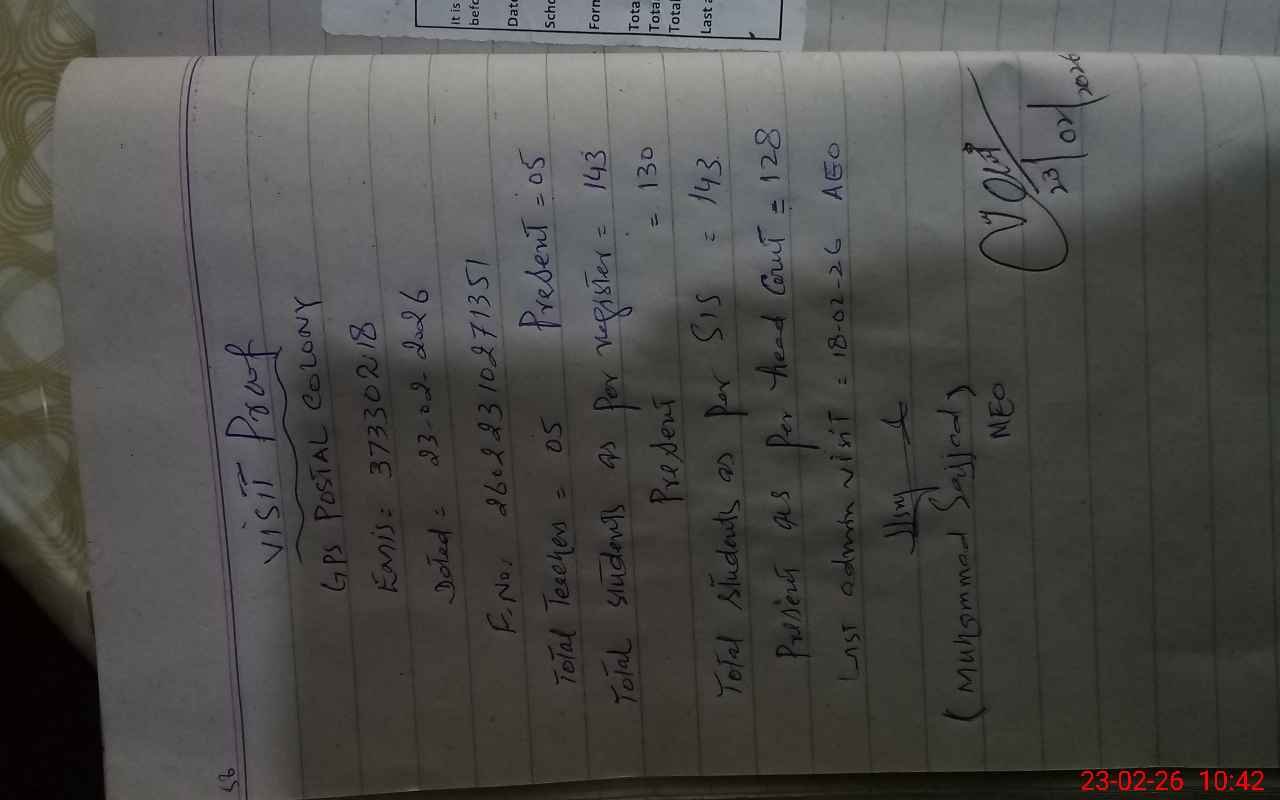 It is
befo
Date
Scho
Form
Tota
Tota
Tota
Last a
58
VISIT Proof
GPS POSTAL COLONY
Emis: 37330218
Dated = 23-02-2026
F.No: 26022310271351
Total Teachers = 05 Present = 05
Total students as per register = 143
Present = 130
Total students as per SIS = 143
Present as per head Count = 128
Last admin visit = 18-02-26 AEO
(Muhammad Sajjad)
MEO
23/02/2026
23-02-26 10:42